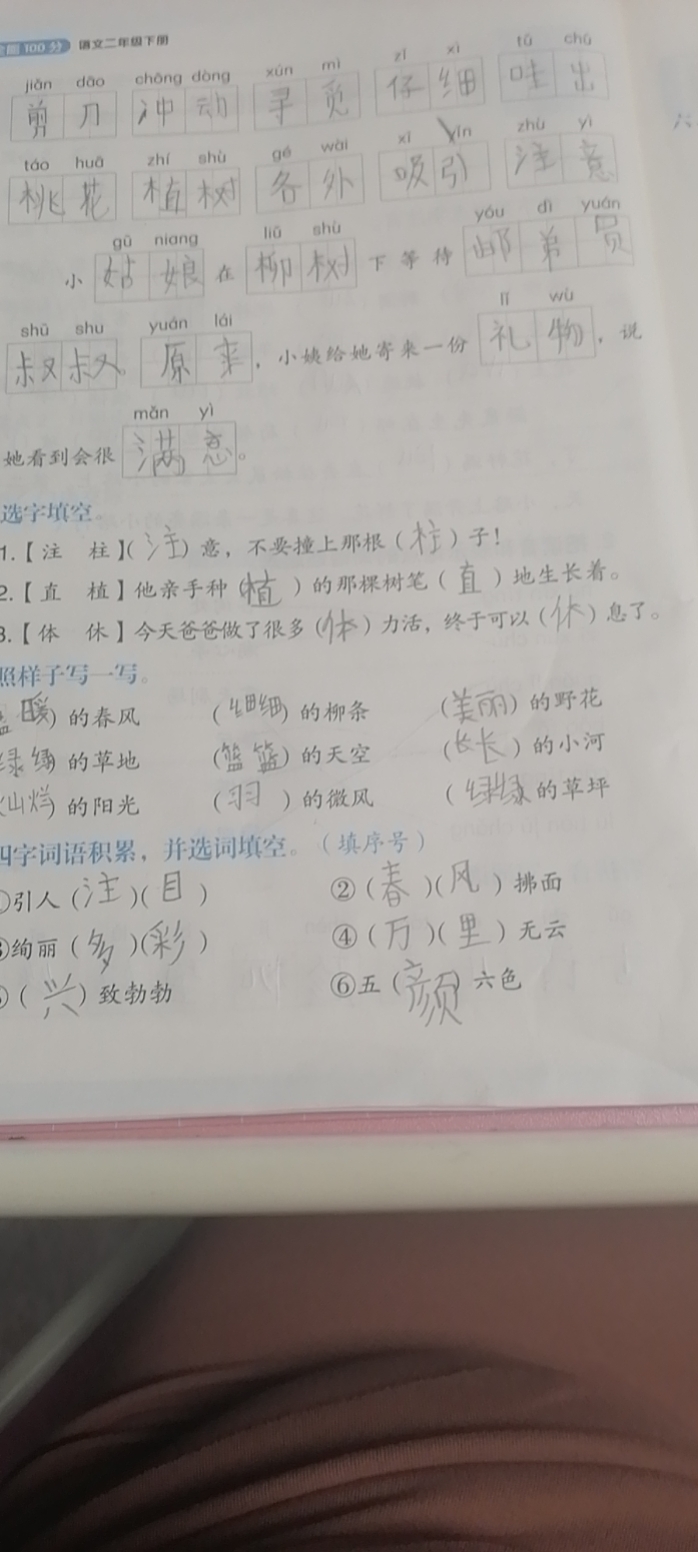 100分 语文二年级下册
jiǎn dāo chōng dòng xún mì zǐ xì tǔ chū
剪刀 冲动 寻觅 仔细 吐出
táo huā zhí shù gé wài xī yǐn zhù yì
桃花 植树 各外 吸引 注意
gū niang liǔ shù yóu dì yuán
小姑娘在柳树下等待邮弟员
shū shu yuán lái lǐ wù
叔叔。原来，小姨给她寄来一份礼物，说
mǎn yì
她看到会很满意。
选字填空。
1.【注 柱】(注)意，不要撞上那根(柱)子！
2.【直 植】他亲手种(植)的那棵树笔(直)地生长着。
3.【体 休】今天爸爸做了很多(体)力活，终于可以(休)息了。
照样子写一写。
暖)的春风 (细细)的柳条 (美丽)的野花
绿绿的草地 (篮篮)的天空 (长长)的小河
(灿烂)的阳光 (羽)的微风 (绿绿的草坪
四字词语积累，并选词填空。(填序号)
①引人(注)(目) ②(春)(风)拂面
③绚丽(多)(彩) ④(万)(里)无云
(兴)致勃勃 ⑥五(颜)六色
六